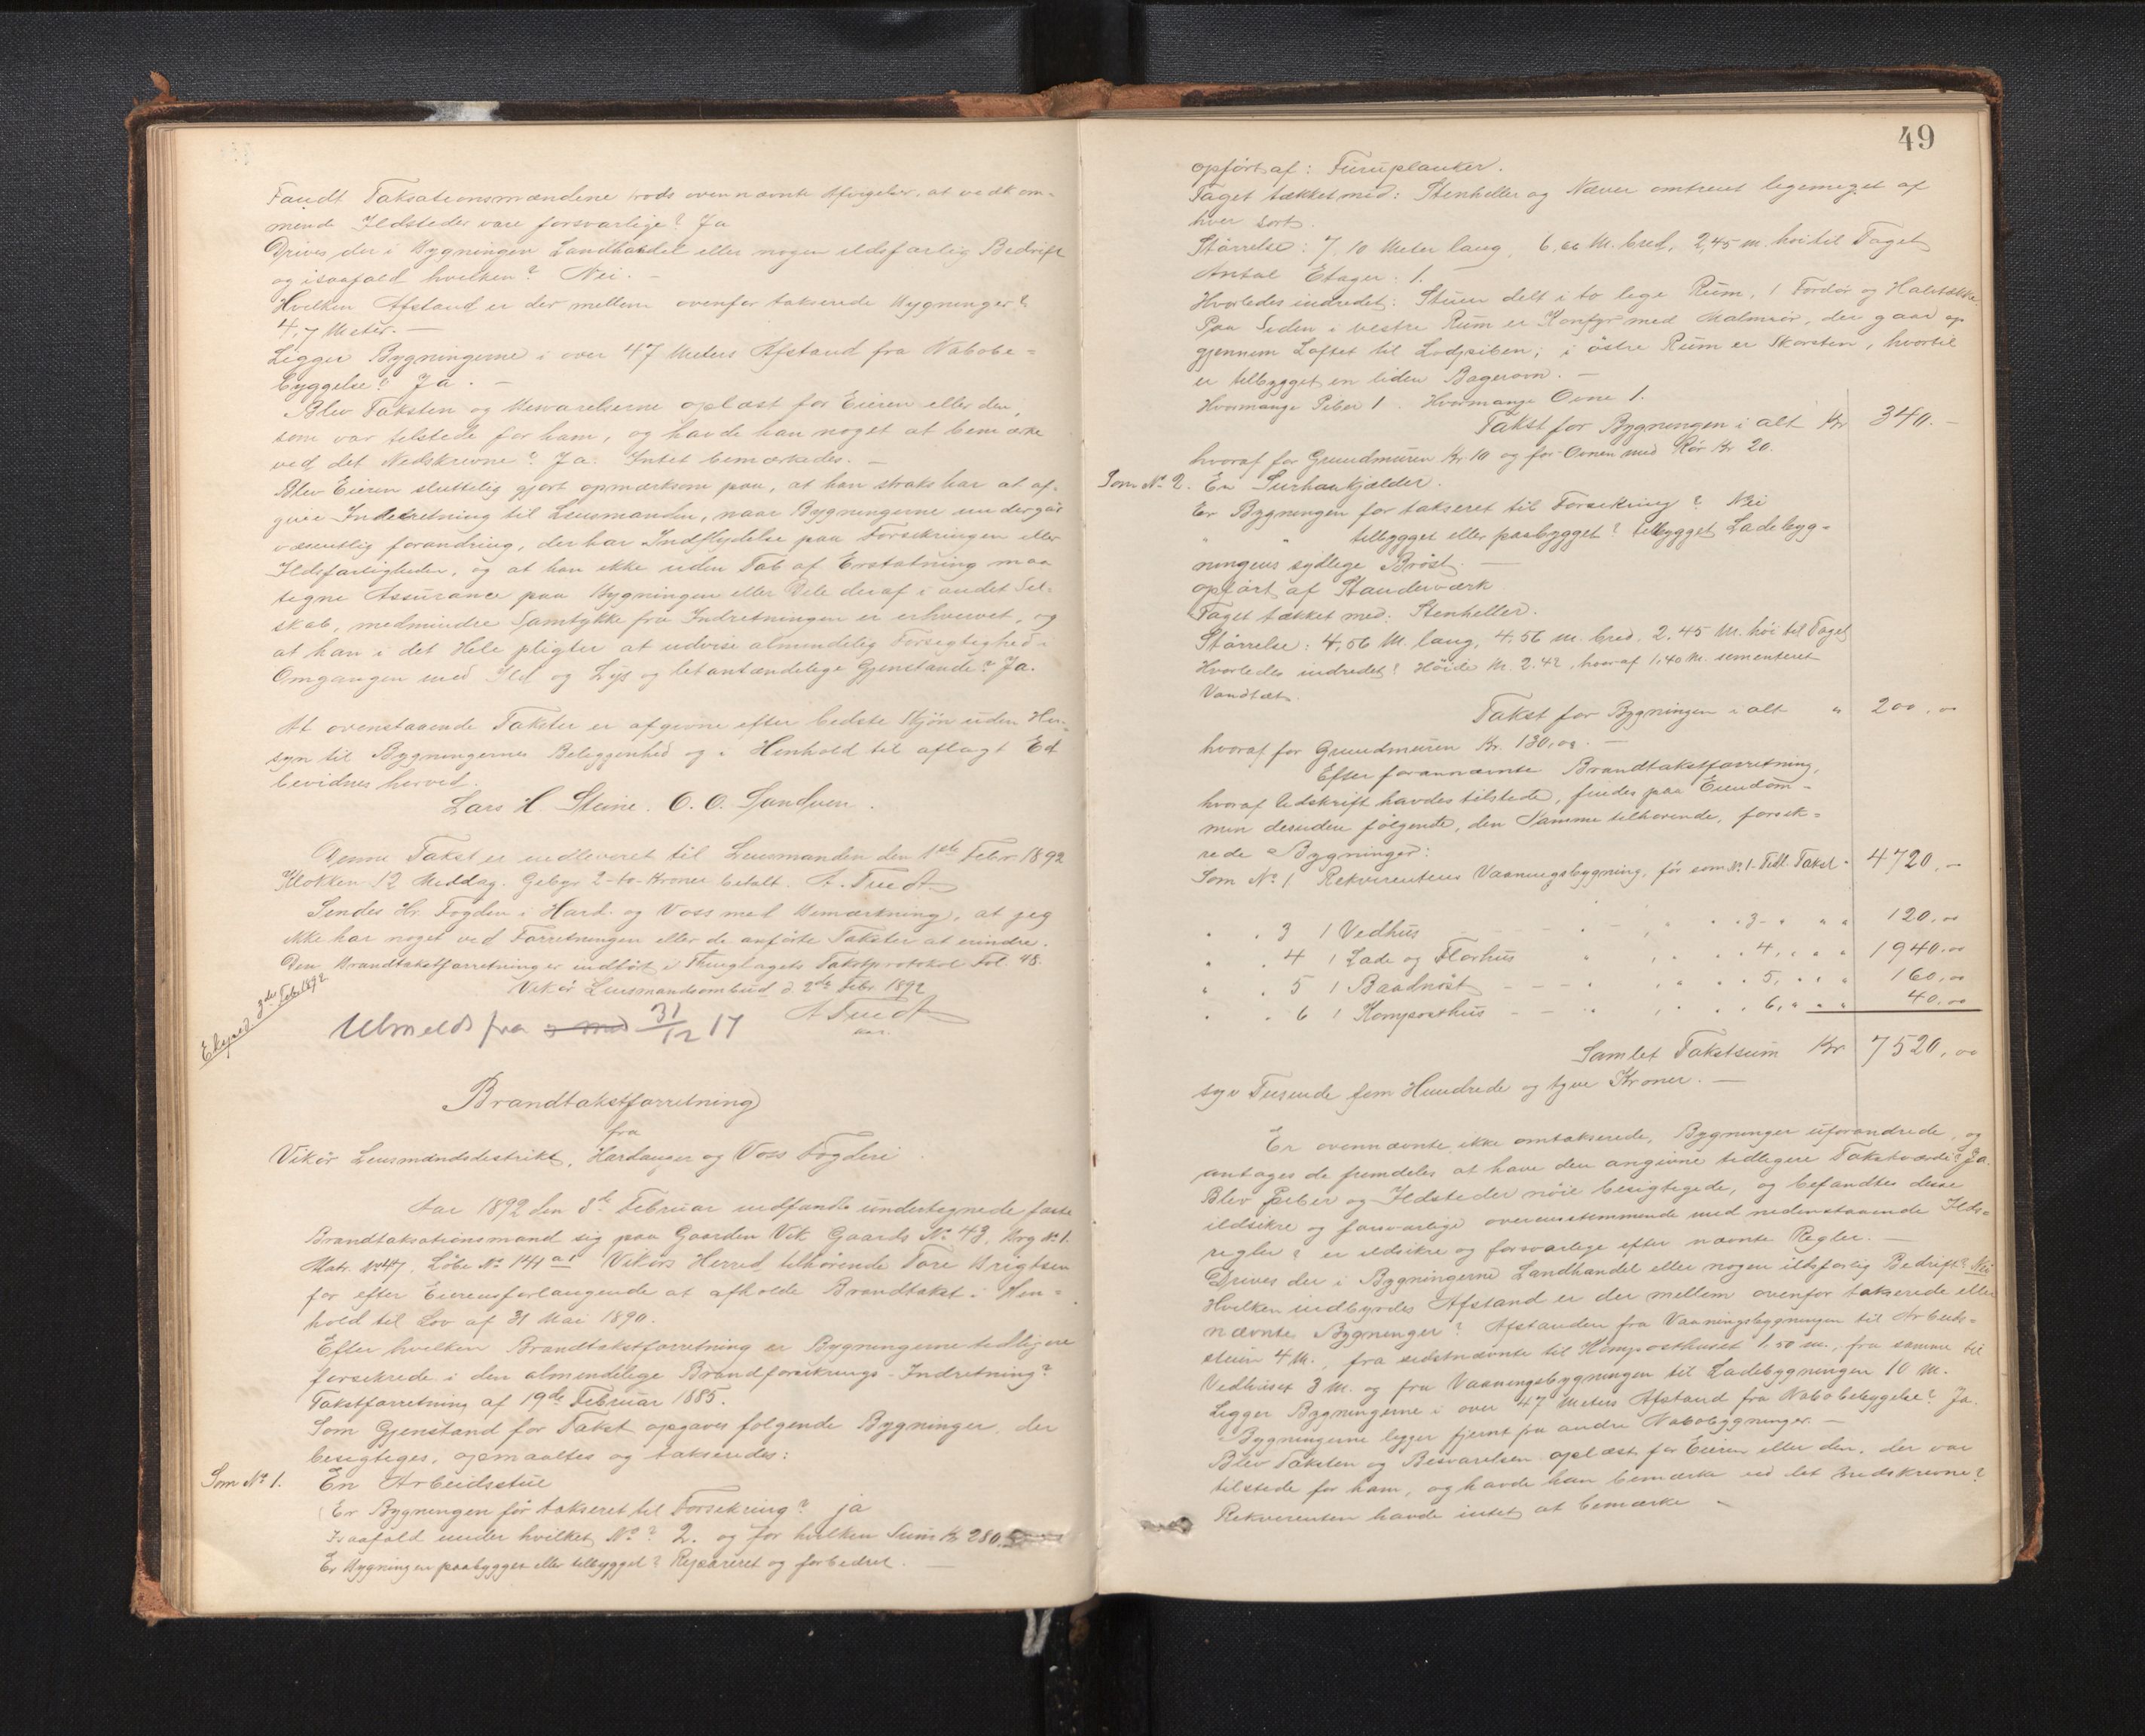 Fandt Taksationsmændene trods ovennævnte Afvigelser, at vedkom-
mende Ildsteder vare forsvarlige? Ja
Drives der i Bygningen Landhandel eller nogen ildsfarlig Bedrift
og isaafald hvilken? Nei. –
Hvilken Afstand er der mellem ovenfor takserede Bygninger?
4,7 Meter. –
Ligger Bygningerne i over 47 Meters Afstand fra Nabobe=
byggelse? Ja. –
Blev Taksten og Besvarelserne oplæst for Eieren eller den,
som var tilstede for ham, og havde han noget at bemærke
ved det Nedskrevne? Ja. Intet bemærkedes. –
Blev Eieren sluttelig gjort opmærksom paa, at han straks har at af-
give Indberetning til Lensmanden, naar Bygningerne undergår
væsentlig forandring, der har Indflydelse paa Forsikringen eller
Ildsfarligheden, og at han ikke uden Tab af Erstatning maa
tegne Assurance paa Bygningen eller Dele deraf i andet Sel-
skab, medmindre Samtykke fra Indretningen er erhvervet, og
at han i det Hele pligter at udvise almindelig Forsigtighed i
Omgangen med Ild og Lys og letantændelige Gjenstande? Ja.
At ovenstaaende Takster er afgivne efter bedste Skjøn uden Hen-
syn til Bygningernes Beliggenhed og i Henhold til aflagt Ed
bevidnes herved.
Lars H. Steine. O. O. Sandven.
Denne Takst er indleveret til Lensmanden den 1ste Febr 1892
Klokken 12 Middag. Gebyr 2 - to - Kroner betalt.
Sendes Hr. Fogden i Hard. og Voss med Bemærkning, at jeg
ikke har noget ved Forretningen eller de anførte Takster at erindre.
Den Brandtakstforretning er indført i Thinglagets Takstprotokol Fol. 48.
Vikør Lensmandsombud d. 2de Febr 1892
Eksped. 3die Febr. 1892
Utmeldt fra 31/12 17
Brandtakstforretning
fra
Vikør Lensmandsdistrikt, Hardanger og Voss Fogderi.
Aar 1892 den 8de Februar indfandt undertegnede faste
Brandtaksationsmænd sig paa Gaarden Vik Gaards No 43, Brg No 1.
Matr. No 47, Løbe No 141 a1 Vikørs Herred, tilhørende Tore Brigtsen
for efter Eierens forlangende at afholde Brandtakst i Hen=
hold til Lov af 31 Mai 1890.
Efter hvilken Brandtakstforretning er Bygningerne tidligere
forsikrede i den almindelige Brandforsikrings-Indretning?
Takstforretning af 19de Februar 1885.
Som Gjenstand for Takst opgaves følgende Bygninger, der
besigtiges, opmaaltes og takseredes:
Som No 1. En Arbeidsstue
Er Bygningen før takseret til Forsikring? ja
Isaafald under hvilket No? 2. og for hvilken Sum Kr 280.
Er Bygningen paabygget eller tilbygget? Repareret og forbedret. –
49
opført af: Furuplanker.
Taget tækket med: Stenheller og Næver omtrent ligemeget af
hver sort.
Størrelse: 7,10 Meter lang, 6,66 M. bred, 2,45 m. høi til Taget
Antal Etager: 1.
Hvorledes indredet: Stuen delt i to lige Rum, 1 Fordør og
Paa Siden i vestre Rum er Komfyr med Malmrør, der gaar op
gjennem Loftet til Lodpiben; i østre Rum er Skorsten, hvortil
er tilbygget en liden Bagerovn. –
Hvormange Piber 1. Hvormange Ovne 1.
Takst for Bygningen i alt Kr 340. –
hvoraf for Grundmuren Kr. 10 og for Ovnen med Rør Kr 20.
Som No 2. En Surhaukjælder.
Er Bygningen før takseret til Forsikring? Nei
" " tilbygget eller paabygget? tilbygget Ladebyg=
ningens sydlige Brøst. –
opført af Standerværk
Taget tækket med: Stenheller.
Størrelse: 4,56 M. lang, 4,56 m. bred, 2,45 M. høi til Taget
Hvorledes indredet? Høide M. 2.42, hvoraf 1,40 M. sementeret
Vandtæt.
Takst for Bygningen i alt " 200,00
hvoraf for Grundmuren Kr. 130,00. –
Efter forannævnte Brandtakstforretning,
hvoraf Udskrift havdes tilstede, findes paa Eiendom-
men desuden følgende, den Samme tilhørende, forsik=
rede Bygninger:
Som No 1 Rekvirentens Vaaningsbygning, før som No 1. Tidl. Takst " 4720,–
" " 3 1 Vedhus " 3 " " " 120,00
" " 4 1 Lade og Florhus " 4 " " " 1940,00
" " 5 1 Baadnøst " 5 " " " 160,00
" " 6 1 Komposthus " 6 " " " 40,00
Samlet Takstsum Kr 7520,00
syv Tusende fem Hundrede og tyve Kroner. –
Er ovennævnte, ikke omtakserede, Bygninger uforandrede, og
antages de fremdeles at have den angivne tidligere Takstværdi? Ja.
Blev Piber og Ildsteder nøie besigtigede, og befandtes disse
ildsikre og forsvarlige overensstemmende med nedenstaaende Ilds=
regler? er ildsikre og forsvarlige efter nævnte Regler. –
Drives der i Bygningerne Landhandel eller nogen ildsfarlig Bedrift? Nei
Hvilken indbyrdes Afstand er der mellem ovenfor takserede eller
nævnte Bygninger? Afstanden fra Vaaningsbygningen til Arbeids-
stuen 4 M., fra sidstnævnte til Komposthuset 1,50 m., fra samme til
Vedhuset 3 M. og fra Vaaningsbygningen til Ladebygningen 10 M.
Ligger Bygningerne i over 47 Meters Afstand fra Nabobebyggelse? Ja.
Bygningerne ligger fjernt fra andre Nabobygninger. –
Blev Taksten og Besvarelsen oplæst for Eieren eller den, der var
tilstede for ham, og havde han bemærke ved det Nedskrevne?
Rekvirenten havde intet at bemærke –